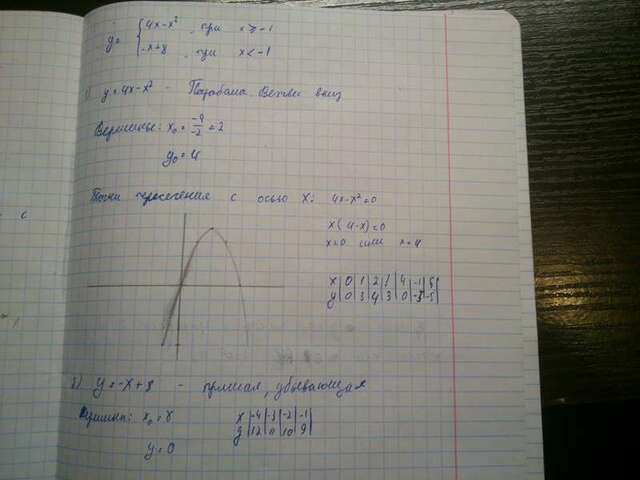 y = { 4x-x², при x ≥ -1
-x+8, при x < -1
1) y = 4x-x² - Парабола. Ветви вниз
Вершины: x₀ = -4/-2 = 2
y₀ = 4
Точки пересечения с осью X: 4x-x²=0
x(4-x)=0
x=0 или x=4
x | 0 | 1 | 2 | 4 | -1 | 5
y | 0 | 3 | 4 | 3 | 0 | -5 | -5
2) y = -x+8 - прямая, убывающая
x₀ = 8
x | -4 | -3 | -2 | -1
y | 12 | 11 | 10 | 9
y = 0
с